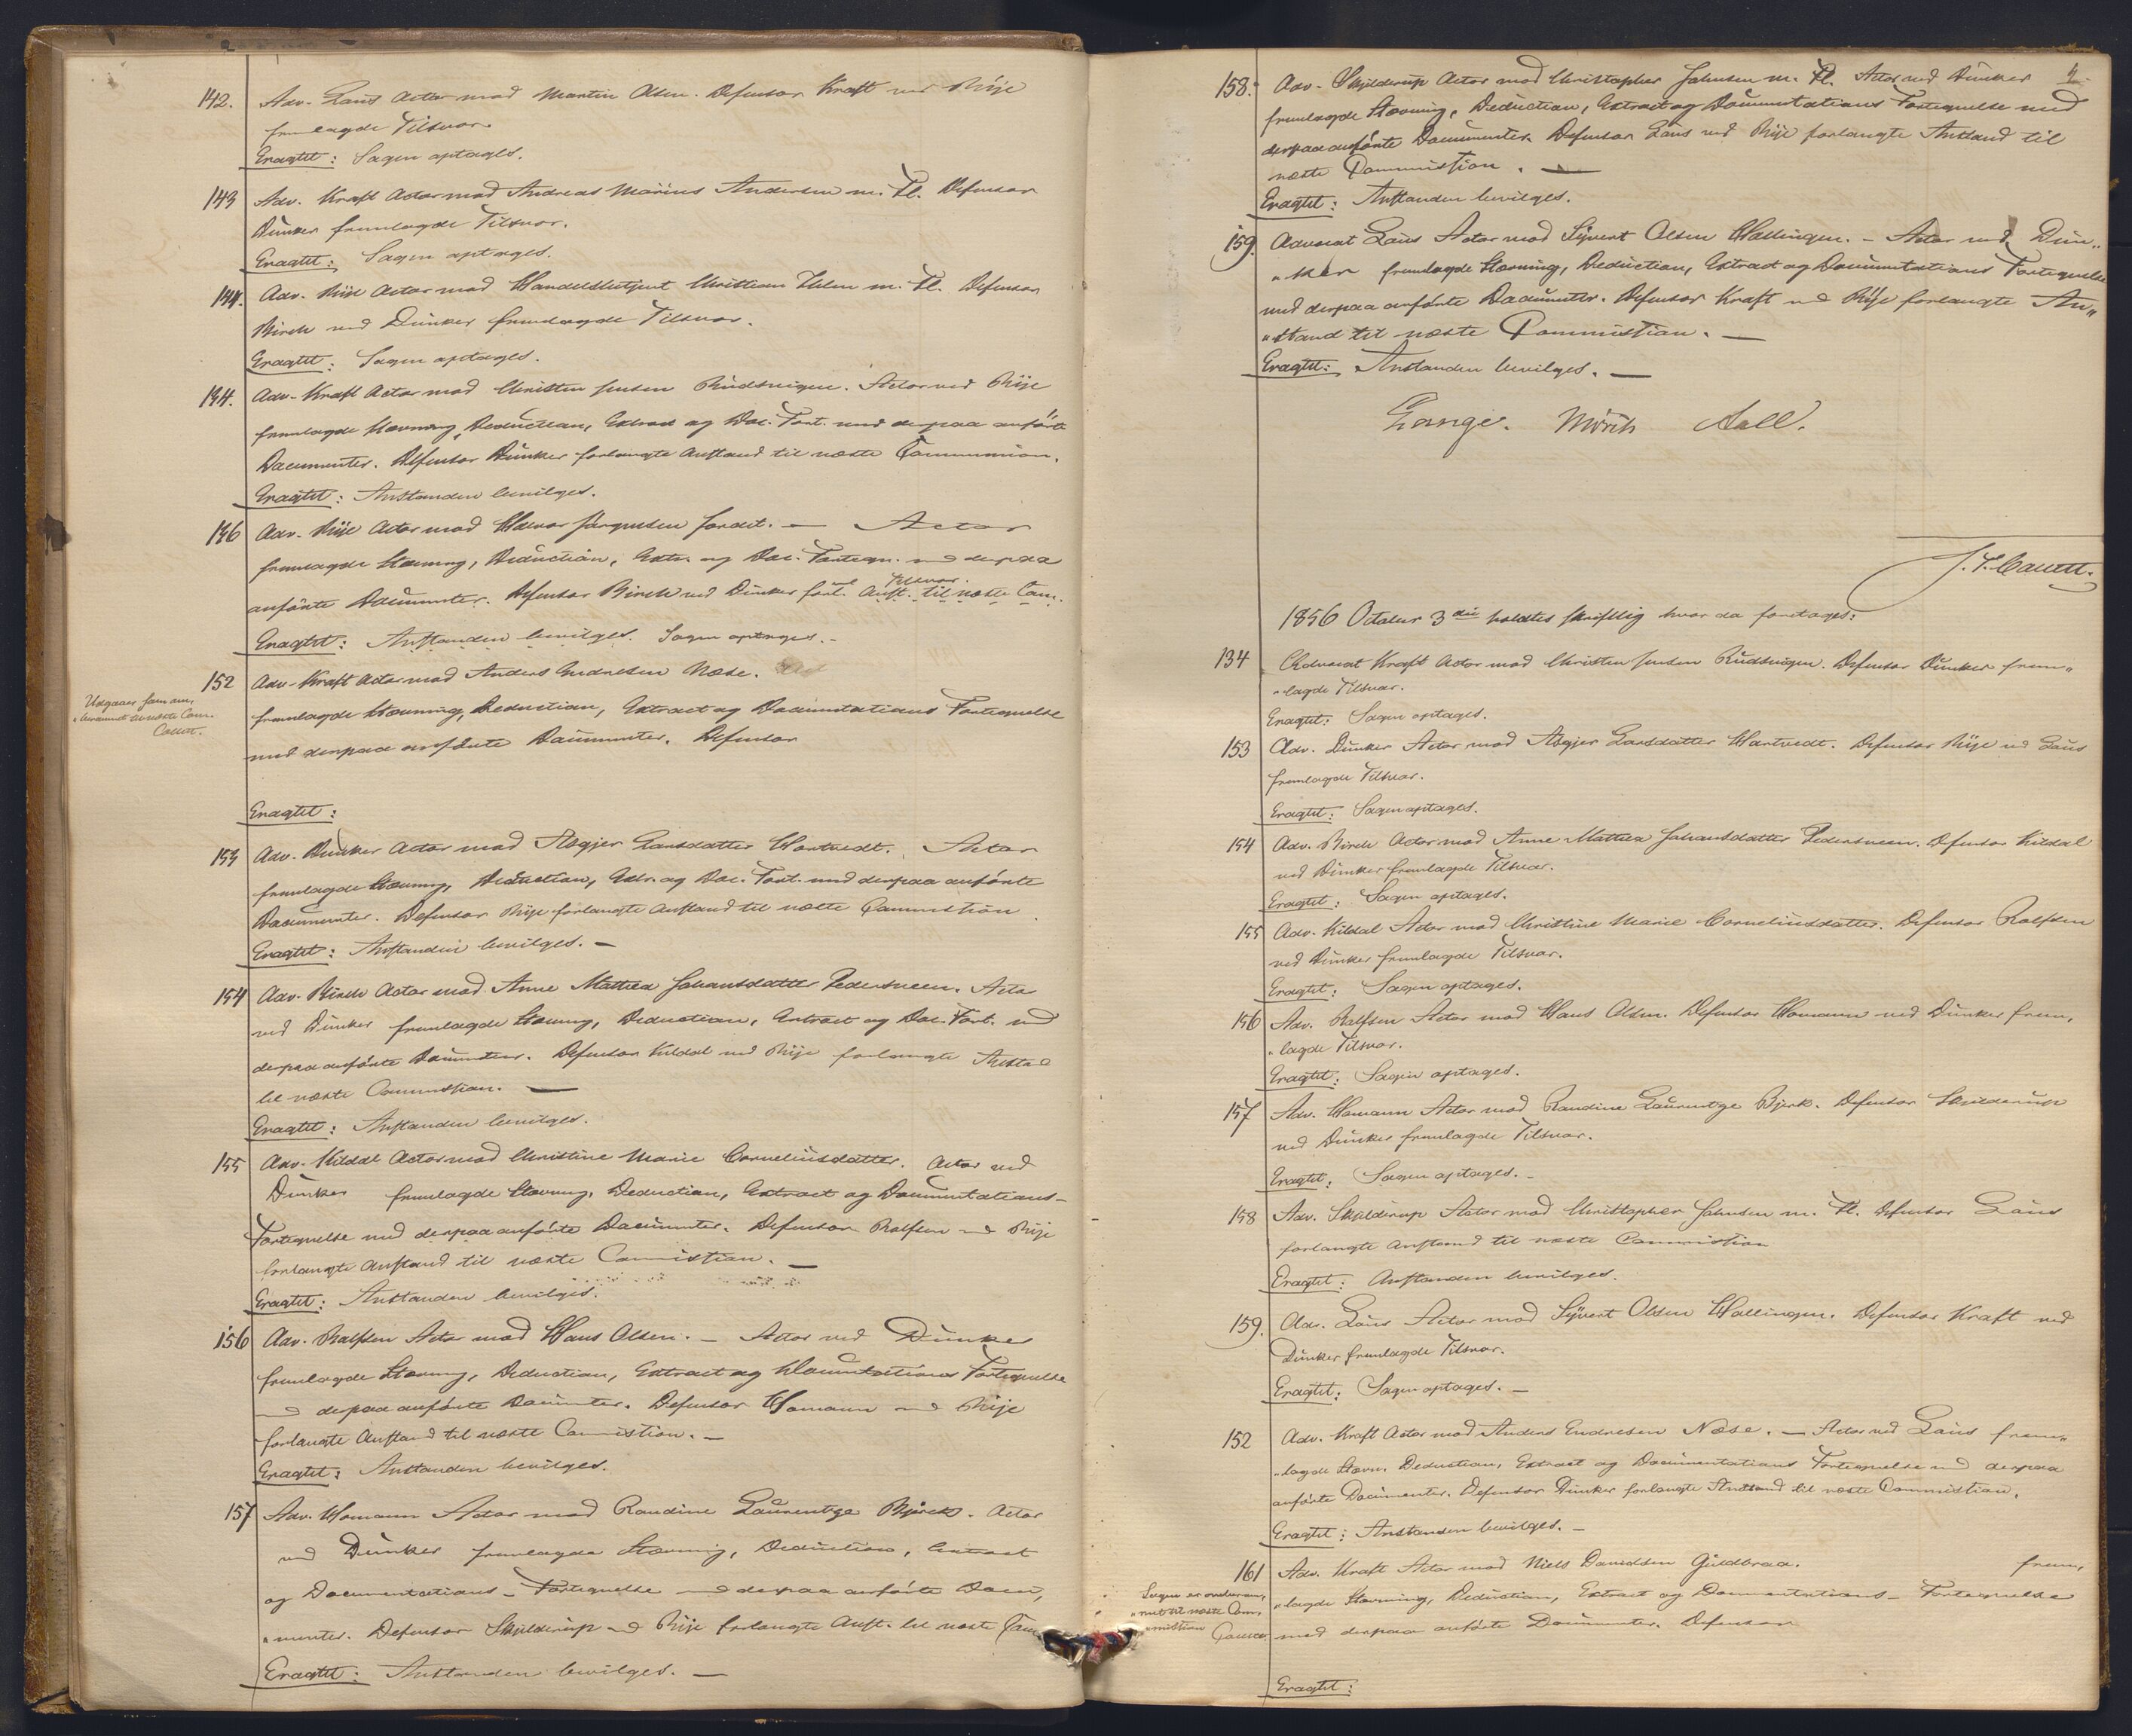 142. Adv. Lous Actor mod Martin Olsen. Defensor Kraft ved Rije
fremlagde Tilsvar.
Eragtet: Sagen optages.
143 Adv. Kraft Actor mod Andreas Marius Andersen m. Fl. Defensor
Dunker fremlagde Tilsvar.
Eragtet: Sagen optages.
144. Adv. Rije Actor mod Handelsbetjent Christian Holm m. Fl. Defensor
Birch ved Dunker fremlagde Tilsvar.
Eragtet: Sagen optages.
Adv. Kraft Actor mod Christen Jensen Rudsvigen. Actor ved Rije
fremlagde Stævning, Deduction, Extract og Doc. Fort. med derpaa anførte
Documenter. Defensor Dunker forlangte Anstand til næste Commission.
Eragtet: Anstanden bevilges.
146 Adv. Rije Actor mod Halvor Jørgensen Jordet. — Actor
fremlagde Stævning, Deduction, Extr. og Doc. Fortegn. med derpaa
anførte Documenter. Defensor Birch ved Dunker forl. Anst. til næste Com.
Tilsvar.
Eragtet: Anstanden bevilges. Sagen optages. –
152 Adv. Kraft Actor mod Anders Endresen Næse.
Udgaaer som
til næste Com.
fremlagde Stævning, Deduction, Extract og Documentations Fortegnelse
med derpaa anførte Documenter. Defensor
Eragtet:
153 Adv. Dunker Actor mod Aasgjer Larsdatter Hartvedt. Actor
fremlagde Stævning, Deduction, Extr. og Doc. Fort. med derpaa anførte
Documenter. Defensor Rije forlangte Anstand til næste Commission.
Eragtet: Anstanden bevilges. –
154 Adv. Birch Actor mod Anne Mathea Johansdatter Pedersveen. Actor
ved Dunker fremlagde Stævning, Deduction, Extract og Doc. Fort. med
derpaa anførte Documenter. Defensor Kildal ved Rije forlangte Anstand
til næste Commission. —
Eragtet: Anstanden bevilges.
155 Adv. Kildal Actor mod Christine Marie Corneliusdatter. Actor ved
Dunker fremlagde Stævning, Deduction, Extract og Documentations-
Fortegnelse med derpaa anførte Documenter. Defensor Rolfsen ved Rije
forlangte Anstand til næste Commission. —
Eragtet: Anstanden bevilges.
156 Adv. Rolfsen Actor mod Hans Olsen. – Actor ved Dunker
fremlagde Stævning, Deduction, Extract og Documentations Fortegnelse
med derpaa anførte Documenter. Defensor Homann ved Rije
forlangte Anstand til næste Commission. –
Eragtet: Anstanden bevilges.
157 Adv. Homann Actor mod Randine Laurentze Bjerck. Actor
ved Dunker fremlagde Stævning, Deduction, Extract
og Documentations-Fortegnelse med derpaa anførte Docu„
„menter. Defensor Skjelderup ved Rije forlangte Anst. til næste Com
Eragtet: Anstanden bevilges. —
4.
158. Adv. Skjelderup Actor mod Christopher Johnsen m. Fl. Actor ved Dunker
fremlagde Stævning, Deduction, Extract og Documentations Fortegnelse med
derpaa anførte Documenter. Defensor Lous ved Rije forlangte Anstand til
næste Commission. —
Eragtet: Anstanden bevilges.
159. Advocat Lous Actor mod Syvert Olsen Hallingen. – Actor ved Dun„
„ker fremlagde Stævning, Deduction, Extract og Documentations Fortegnelse
med derpaa anførte Documenter. Defensor Kraft ved Rije forlangte An„
„stand til næste Commission. —
Eragtet: Anstanden bevilges. —
Lange. Mörch Aall.
1856 October 3die holdtes skriftlig hvor da foretages:
134 Advocat Kraft Actor mod Christen Jensen Rudsvigen. Defensor Dunker frem„
„lagde Tilsvar.
Eragtet: Sagen optages.
153 Adv. Dunker Actor mod Aasgjer Larsdatter Hartvedt. Defensor Rije ved Lous
fremlagde Tilsvar.
Eragtet: Sagen optages.
154 Adv. Birch Actor mod Anne Mathea Johansdatter Pedersveen. Defensor Kildal
ved Dunker fremlagde Tilsvar.
Eragtet: Sagen optages.
155 Adv. Kildal Actor mod Christine Marie Corneliusdatter. Defensor Rolfsen
ved Dunker fremlagde Tilsvar.
Eragtet: Sagen optages.
156 Adv. Rolfsen Actor mod Hans Olsen. Defensor Homann ved Dunker frem„
„lagde Tilsvar.
Eragtet: Sagen optages.
157 Adv. Homann Actor mod Randine Laurentze Bjerk. Defensor Skjelderup
ved Dunker fremlagde Tilsvar.
Eragtet: Sagen optages. –
158 Adv. Skjelderup Actor mod Christopher Johnsen m. Fl. Defensor Lous
forlangte Anstand til næste Commission
Eragtet: Anstanden bevilges.
159. Adv. Lous Actor mod Syvert Olsen Hallingen. Defensor Kraft ved
Dunker fremlagde Tilsvar.
Eragtet: Sagen optages. –
152 Adv. Kraft Actor mod Anders Endresen Næse. – Actor ved Lous frem„
„lagde Stævn. Deduction, Extract og Documentations Fortegnelse med derpaa
anførte Documenter. Defensor Dunker forlangte Anstand til næste Commission.
Eragtet: Anstanden bevilges. –
161 Adv. Kraft Actor mod Niels Davidsen Guldbraa. frem„
Sagen er
til næste Com„
„mission
„lagde Stævning, Deduction, Extract og Documentations-Fortegnelse
med derpaa anførte Documenter. Defensor
Eragtet: